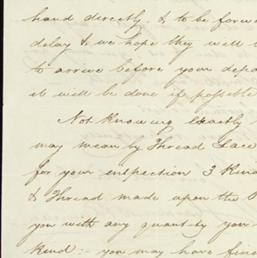 hand directly, & to be forw
delay & we hope they will
to arrive before your depa
it will be done if possible
Not Knowing Exactly
may mean by Thread Lace
for your inspection 3 Kind
& Thread made upon the
you with any quantity you
Kind :- you may have fine